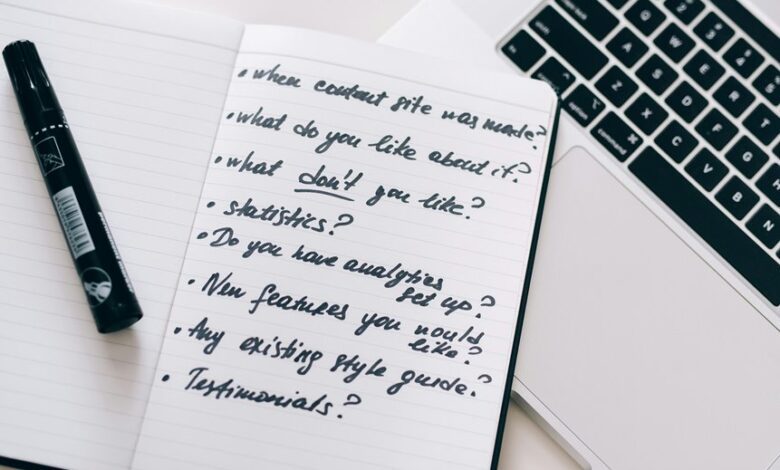 • when content site was made?
• what do you like about it?
• what don't you like?
• statistics?
• Do you have analytics
set up?
• New features you would
like?
• Any existing style guide?
• Testimonials?
Q W E R T
A S D F G H
Z X C V B N
option
command